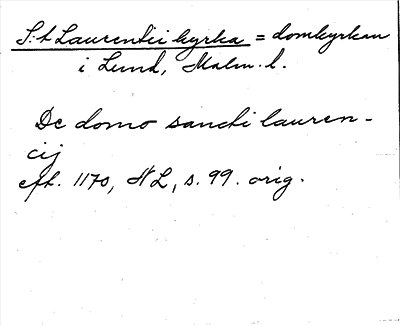 S:t Laurentii kyrka = domkyrkan
i Lund, Malm. l.
De domo sancti lauren-
cij
eft. 1170, NL, s. 99. orig.